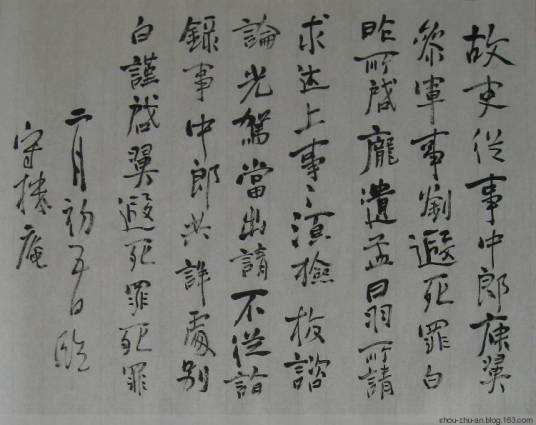 故吏從事中郎庾翼
參軍事劉遐死罪白
昨所啟龐遺孟曰羽所請
求迭上事〻須檢校諮
論光駕當出請不從詣
錄事中郎共詳處別
白謹啟翼遐死罪死罪
二月初五日臨
守樸庵
shou-zhu-an.blog.163.com